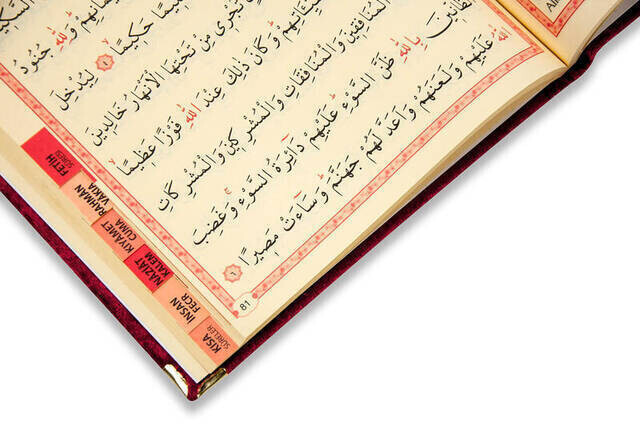 وَلِلّٰهِ جُنُودُ
حَكِيمًا لِيُدْخِلَ
تَجْرِى مِنْ تَحْتِهَا الْاَنْهَارُ خَالِدِينَ
وَكَانَ ذٰلِكَ عِنْدَ اللّٰهِ فَوْزًا عَظِيمًا
الْمُنَافِقِينَ وَالْمُنَافِقَاتِ وَالْمُشْرِكِينَ وَالْمُشْرِكَاتِ
بِاللّٰهِ ظَنَّ السَّوْءِ عَلَيْهِمْ دَآئِرَةُ السَّوْءِ وَغَضِبَ
اللّٰهُ عَلَيْهِمْ وَلَعَنَهُمْ وَاَعَدَّ لَهُمْ جَهَنَّمَ وَسَآءَتْ مَصِيرًا ٦
81
FETİH
SURESİ
RAHMAN
VAKIA
KIYAMET
CUMA
NAZİAT
KALEM
İNSAN
FECR
KISA
SURELER